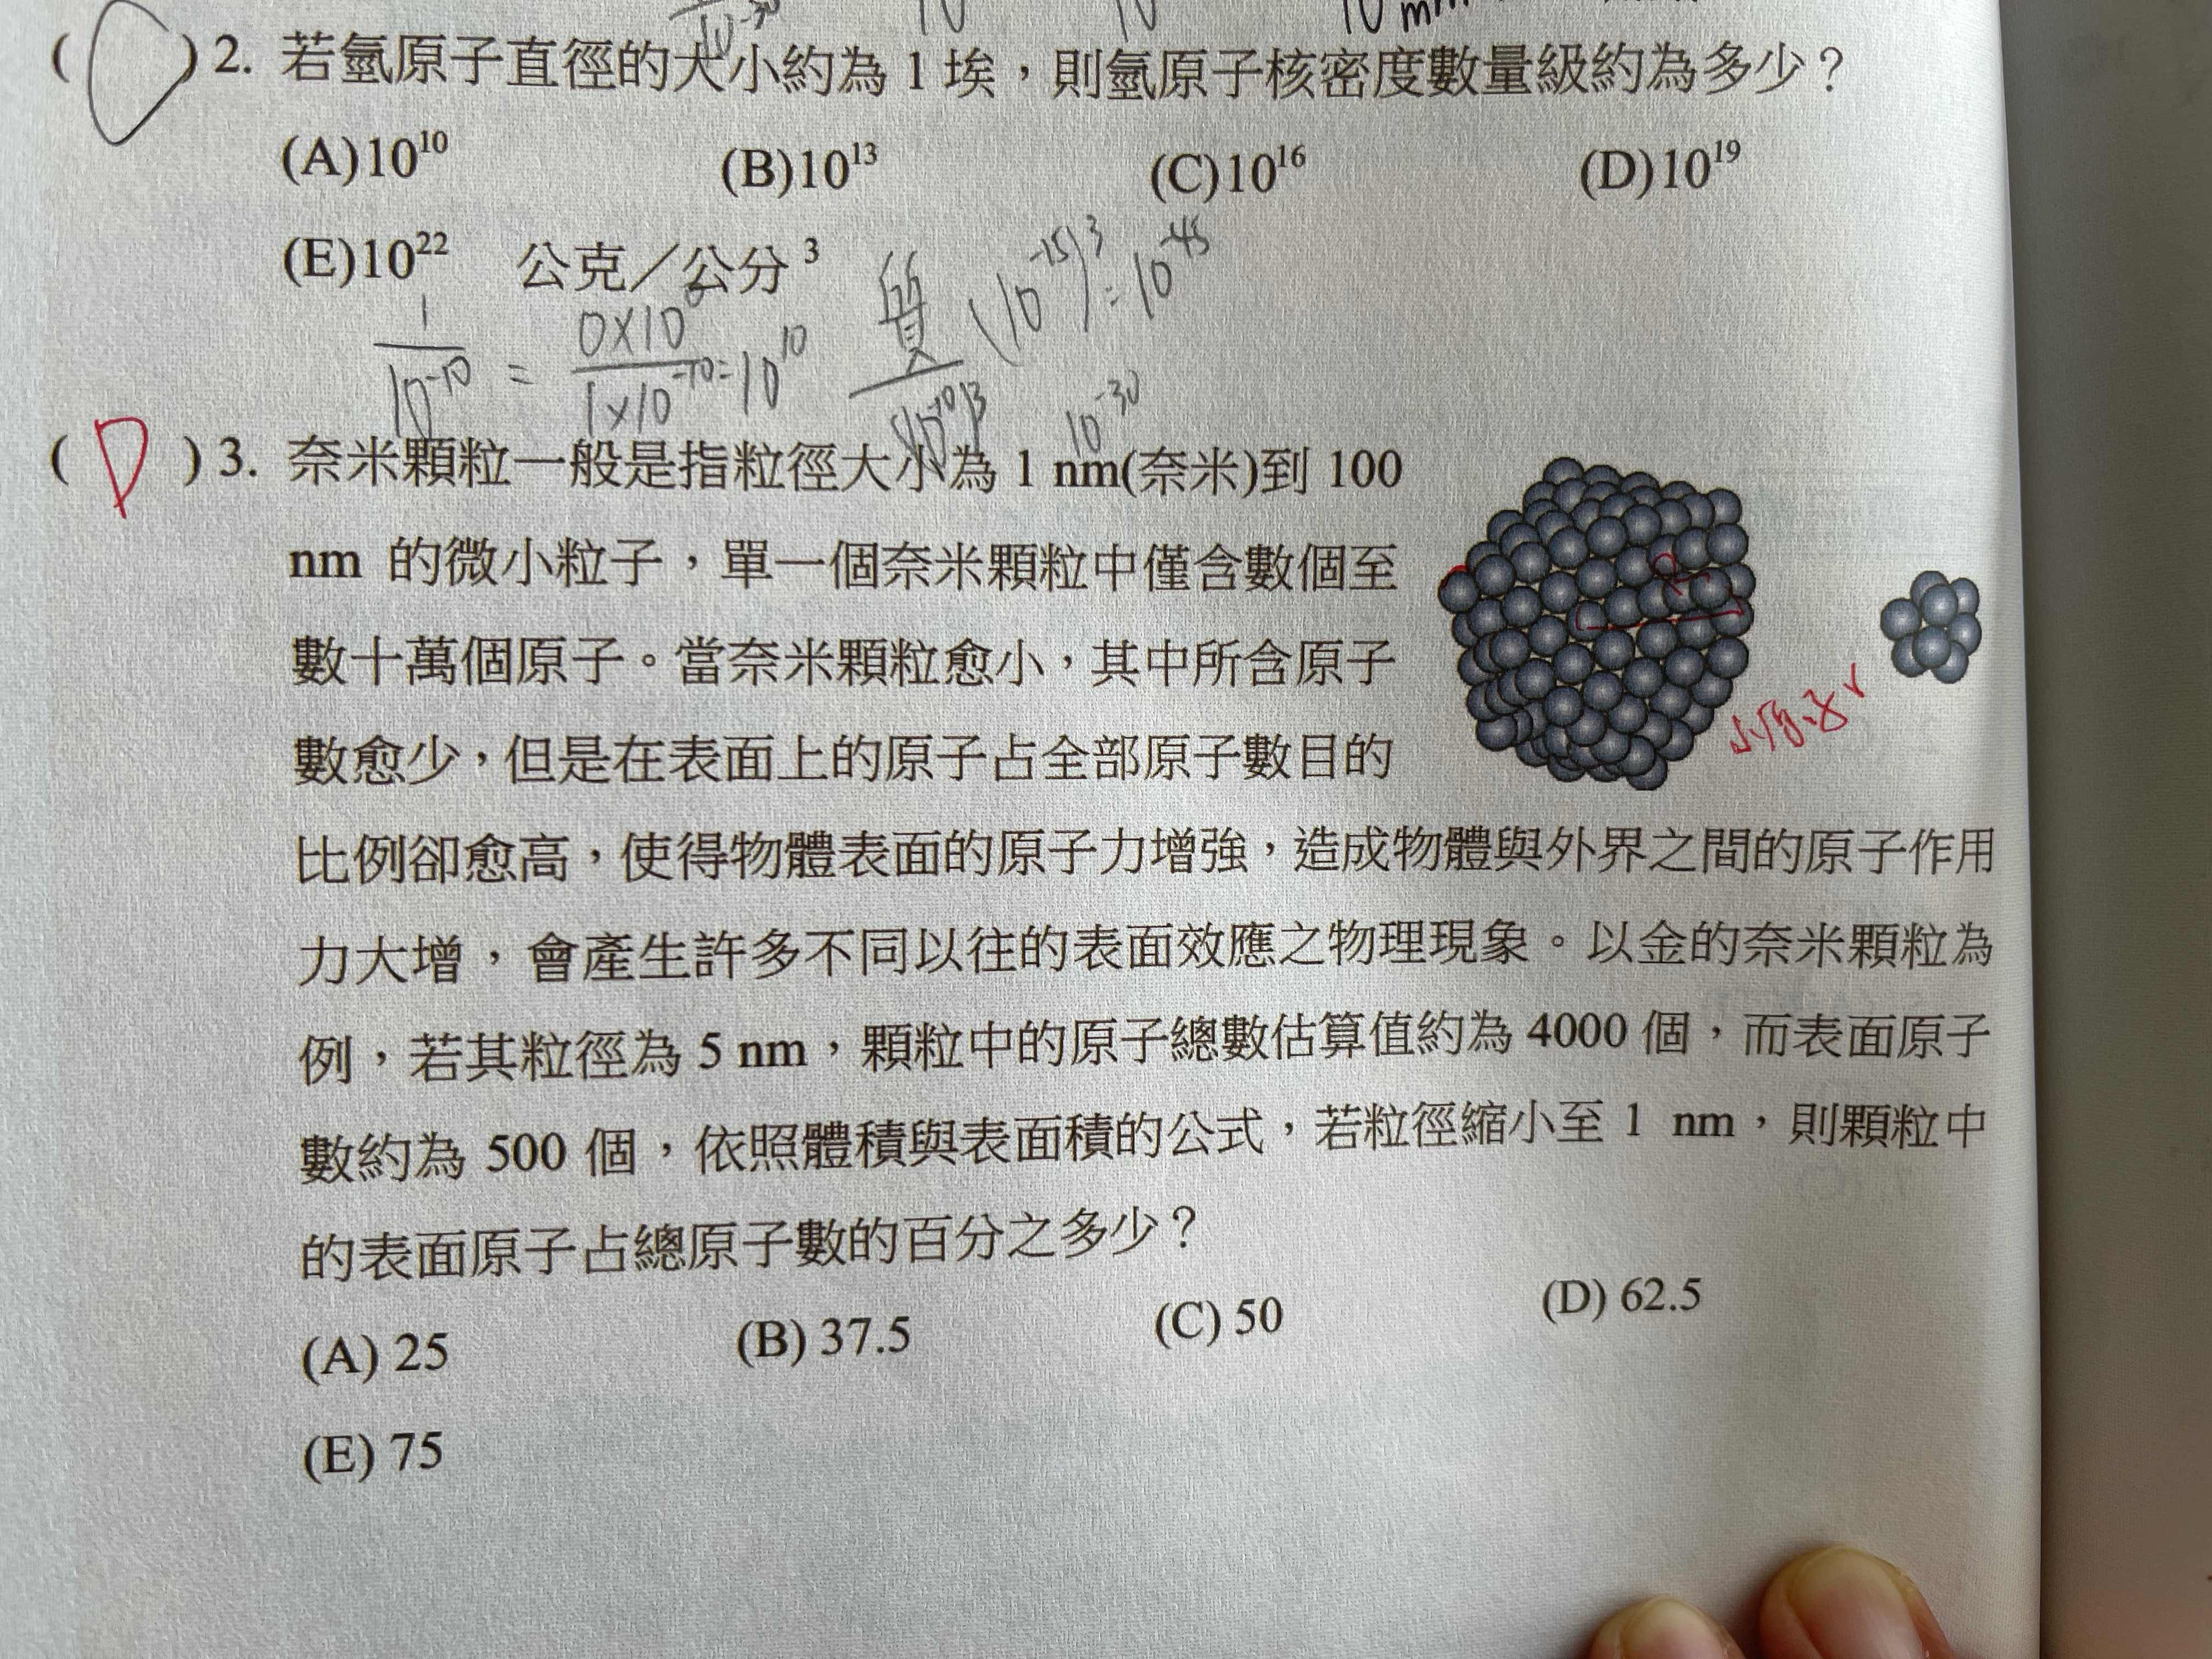 10 10 10 mm
( ) 2. 若氫原子直徑的大小約為 1 埃，則氫原子核密度數量級約為多少？
(A)10¹⁰ (B)10¹³ (C)10¹⁶ (D)10¹⁹
(E)10²² 公克／公分³
質 (10⁻¹⁵)³=10⁻⁴⁵
10⁻³⁰
( D ) 3. 奈米顆粒一般是指粒徑大小為 1 nm(奈米)到 100
nm 的微小粒子，單一個奈米顆粒中僅含數個至
數十萬個原子。當奈米顆粒愈小，其中所含原子
數愈少，但是在表面上的原子占全部原子數目的
比例卻愈高，使得物體表面的原子力增強，造成物體與外界之間的原子作用
力大增，會產生許多不同以往的表面效應之物理現象。以金的奈米顆粒為
例，若其粒徑為 5 nm，顆粒中的原子總數估算值約為 4000 個，而表面原子
數約為 500 個，依照體積與表面積的公式，若粒徑縮小至 1 nm，則顆粒中
的表面原子占總原子數的百分之多少？
(A) 25 (B) 37.5 (C) 50 (D) 62.5
(E) 75